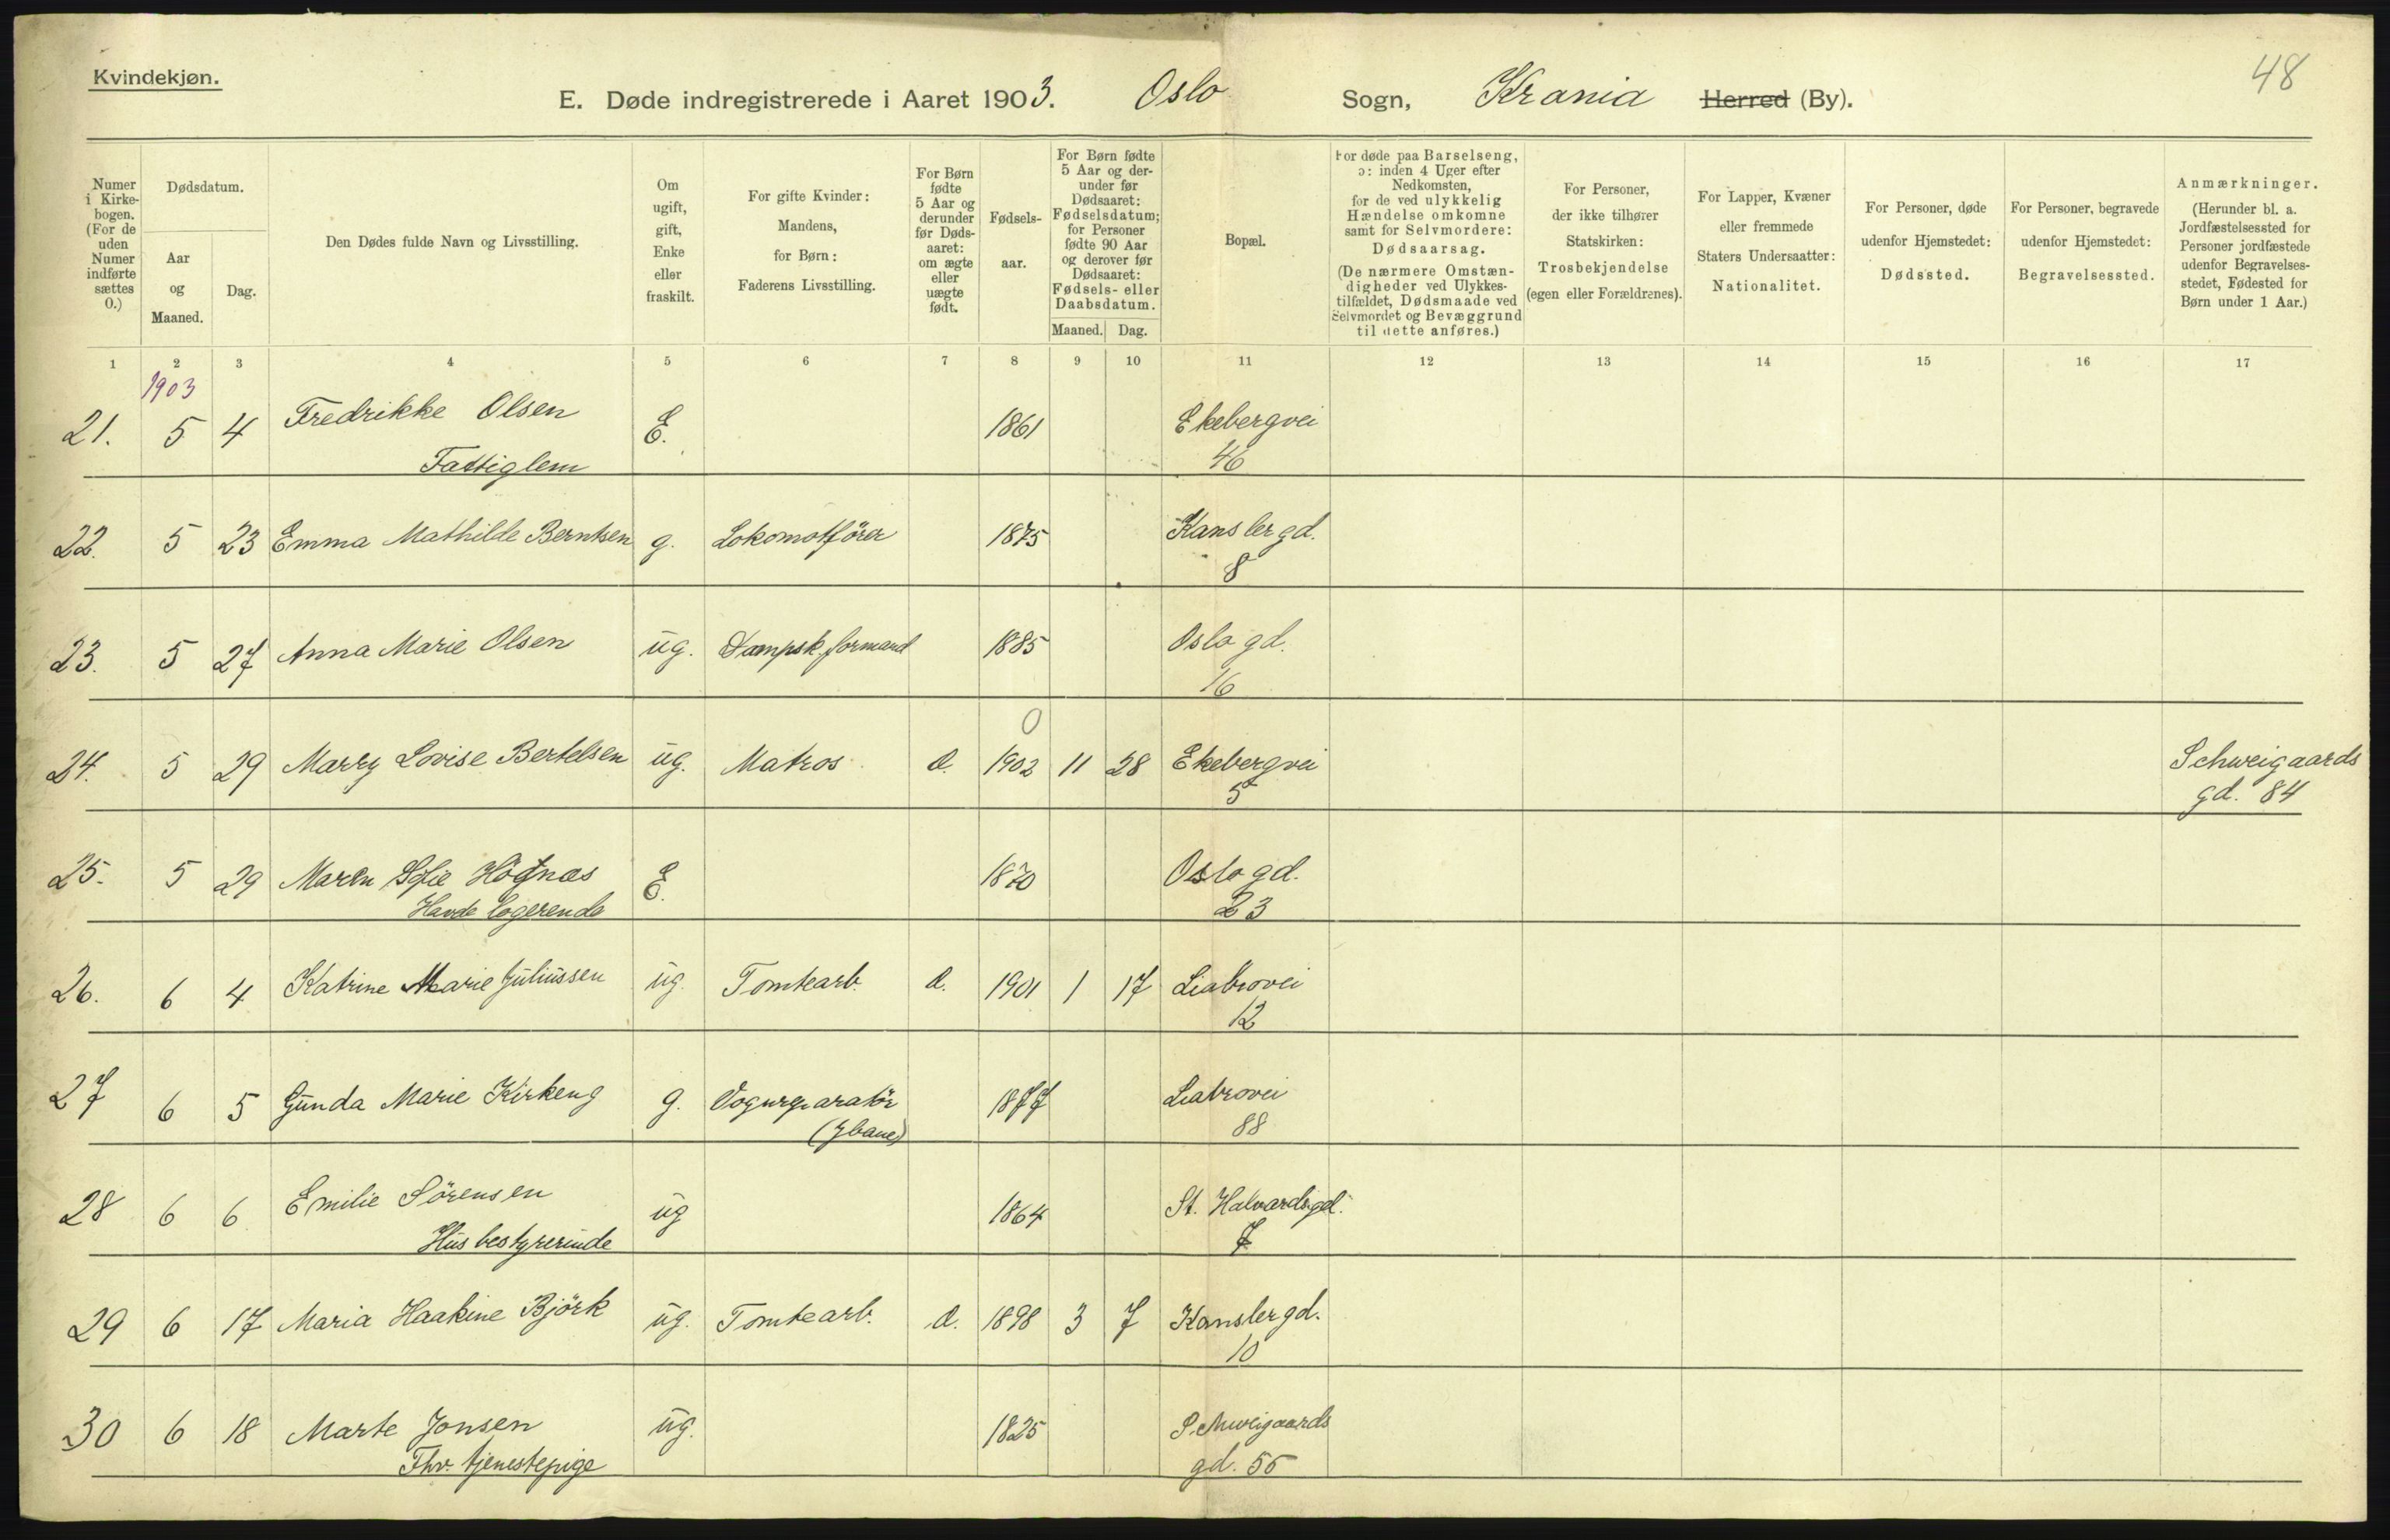 Kvindekjøn.
48
E. Døde indregistrerede i Aaret 1903. Oslo Sogn, Krania Herred (By).
Numer i Kirkebogen. (For de uden Numer indførte sættes 0.)
Dødsdatum.
Aar og Maaned.
Dag.
Den Dødes fulde Navn og Livsstilling.
Om ugift, gift, Enke eller fraskilt.
For gifte Kvinder: Mandens, for Børn: Faderens Livsstilling.
For Børn fødte 5 Aar og derunder før Dødsaaret: om ægte eller uægte født.
Fødselsaar.
For Børn fødte 5 Aar og derunder før Dødsaaret: Fødselsdatum; for Personer fødte 90 Aar og derover før Dødsaaret: Fødsels- eller Daabsdatum.
Maaned. Dag.
Bopæl.
For døde paa Barselseng, ɔ: inden 4 Uger efter Nedkomsten, for de ved ulykkelig Hændelse omkomne samt for Selvmordere: Dødsaarsag. (De nærmere Omstændigheder ved Ulykkestilfældet, Dødsmaade ved Selvmordet og Bevæggrund til dette anføres.)
For Personer, der ikke tilhører Statskirken: Trosbekjendelse (egen eller Forældrenes).
For Lapper, Kvæner eller fremmede Staters Undersaatter: Nationalitet.
For Personer, døde udenfor Hjemstedet: Dødssted.
For Personer, begravede udenfor Hjemstedet: Begravelsessted.
Anmærkninger. (Herunder bl. a. Jordfæstelsessted for Personer jordfæstede udenfor Begravelsesstedet, Fødested for Børn under 1 Aar.)
1 2 3 4 5 6 7 8 9 10 11 12 13 14 15 16 17
1903
21. 5 4 Fredrikke Olsen E. 1861 Ekebergvei
Fattiglem 46
22. 5 23 Emma Mathilde Berntsen g. Lokomotförer 1875 Kanslergd.
8
23. 5 27 Anna Marie Olsen ug. Dampsk.formand 1885 Oslogd.
16
0
24. 5 29 Marry Lovise Bertelsen ug. Matros d. 1902 11 28 Ekebergvei Schweigaards
5 gd. 84
25. 5 29 Maren Sofie E. 1870 Oslogd.
logerende 23
26. 6 4 Katrine Marie Juliussen ug. Tomtearb. d. 1901 1 17 Liabrovei
12
27 6 5 Gunda Marie Kirkeng g. Vognreparatör 1877 Liabrovei
(Jbane) 88
28 6 6 Emilie Sörensen ug 1864 St. Halvardsgd.
Husbestyrerinde 7
29 6 17 Maria Haakine Björk ug. Tomtearb. d. 1898 3 7 Kanslergd.
10
30 6 18 Marte Jonsen ug. 1825 Schweigaards
Fhv. tjenestepige gd. 55